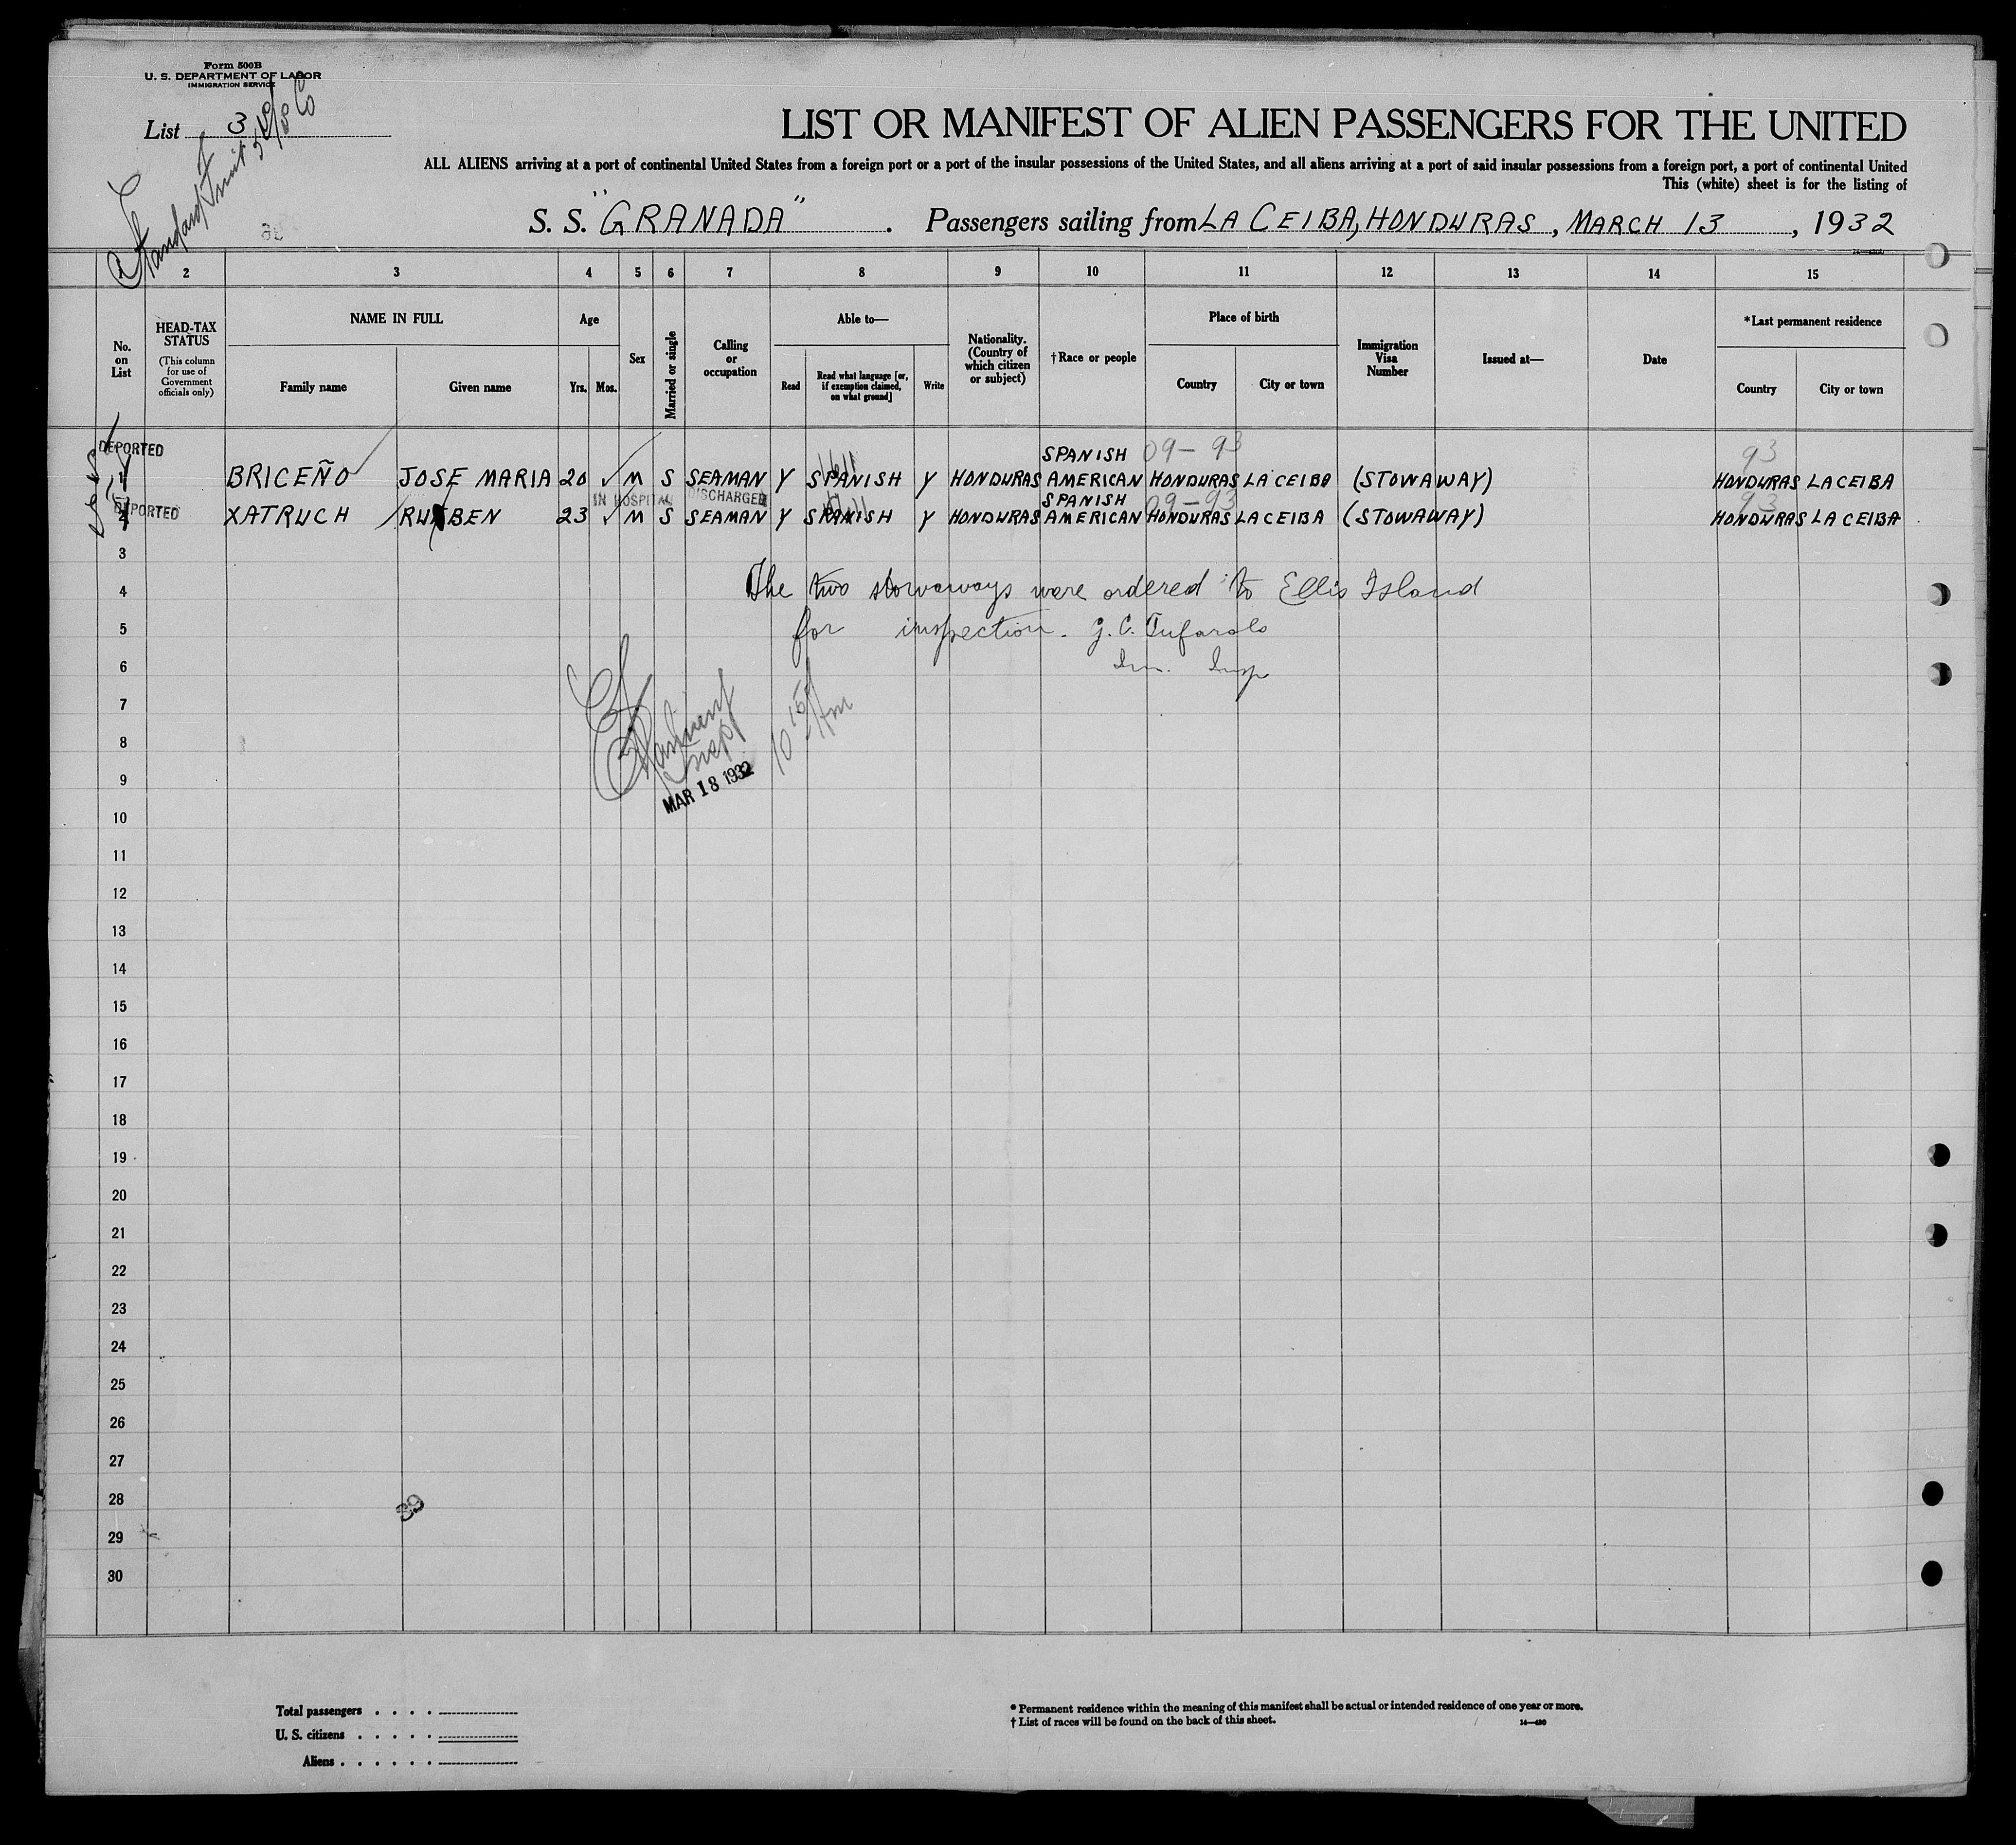 Form 500B
U. S. DEPARTMENT OF LABOR
IMMIGRATION SERVICE
List 3
Standard Fruit
LIST OR MANIFEST OF ALIEN PASSENGERS FOR THE UNITED
ALL ALIENS arriving at a port of continental United States from a foreign port or a port of the insular possessions of the United States, and all aliens arriving at a port of said insular possessions from a foreign port, a port of continental United
This (white) sheet is for the listing of
S. S. "GRANADA". Passengers sailing from LA CEIBA, HONDURAS, MARCH 13, 1932
2 3 4 5 6 7 8 9 10 11 12 13 14 15
No. on List
HEAD-TAX STATUS
(This column for use of Government officials only)
NAME IN FULL
Family name
Given name
Age
Yrs.
Mos.
Sex
Married or single
Calling or occupation
Able to—
Read
Read what language [or, if exemption claimed, on what ground]
Write
Nationality. (Country of which citizen or subject)
†Race or people
Place of birth
Country
City or town
Immigration Visa Number
Issued at—
Date
*Last permanent residence
Country
City or town
DEPORTED
SPANISH 09-93 93
BRICEÑO JOSE MARIA 20 M S SEAMAN Y SPANISH Y HONDURAS AMERICAN HONDURAS LA CEIBA (STOWAWAY) HONDURAS LA CEIBA
DEPORTED IN HOSPITAL DISCHARGED SPANISH 09-93 93
2 XATRUCH RUBEN 23 M S SEAMAN Y SPANISH Y HONDURAS AMERICAN HONDURAS LA CEIBA (STOWAWAY) HONDURAS LA CEIBA
3
4 The two stowaways were ordered to Ellis Island
5 for inspection. G. C. Tufarolo
6 Im. Insp
7
8
9
MAR 18 1932
10
11
12
13
14
15
16
17
18
19
20
21
22
23
24
25
26
27
28
39
29
30
Total passengers
U. S. citizens
Aliens
* Permanent residence within the meaning of this manifest shall be actual or intended residence of one year or more.
† List of races will be found on the back of this sheet.
14—430